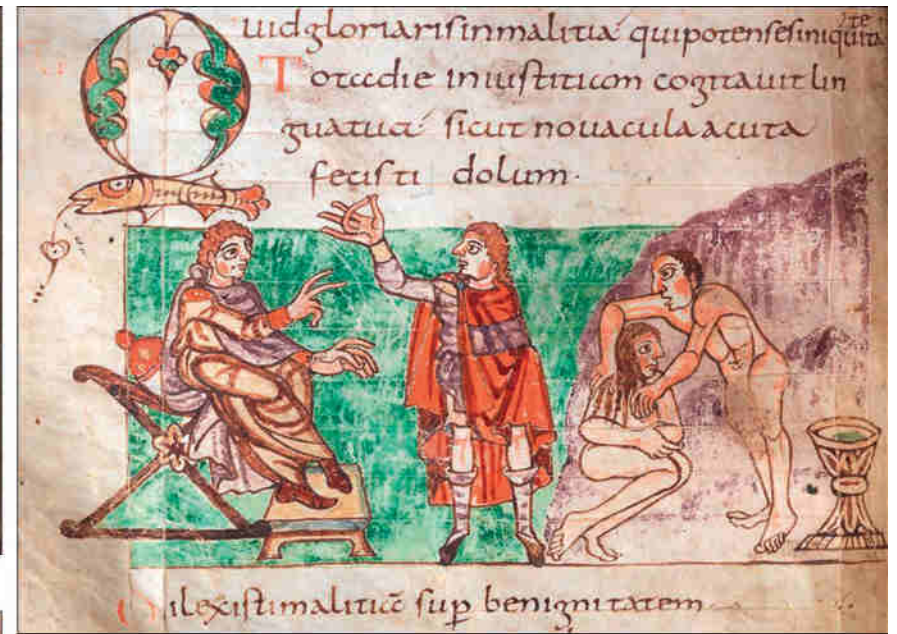 Quid gloriaris in malitia qui potens es iniquita te
Tota die iniustitiam cogitauit lin
gua tua sicut nouacula acuta
fecisti dolum·
Dilexisti malitiā sup benignitatem